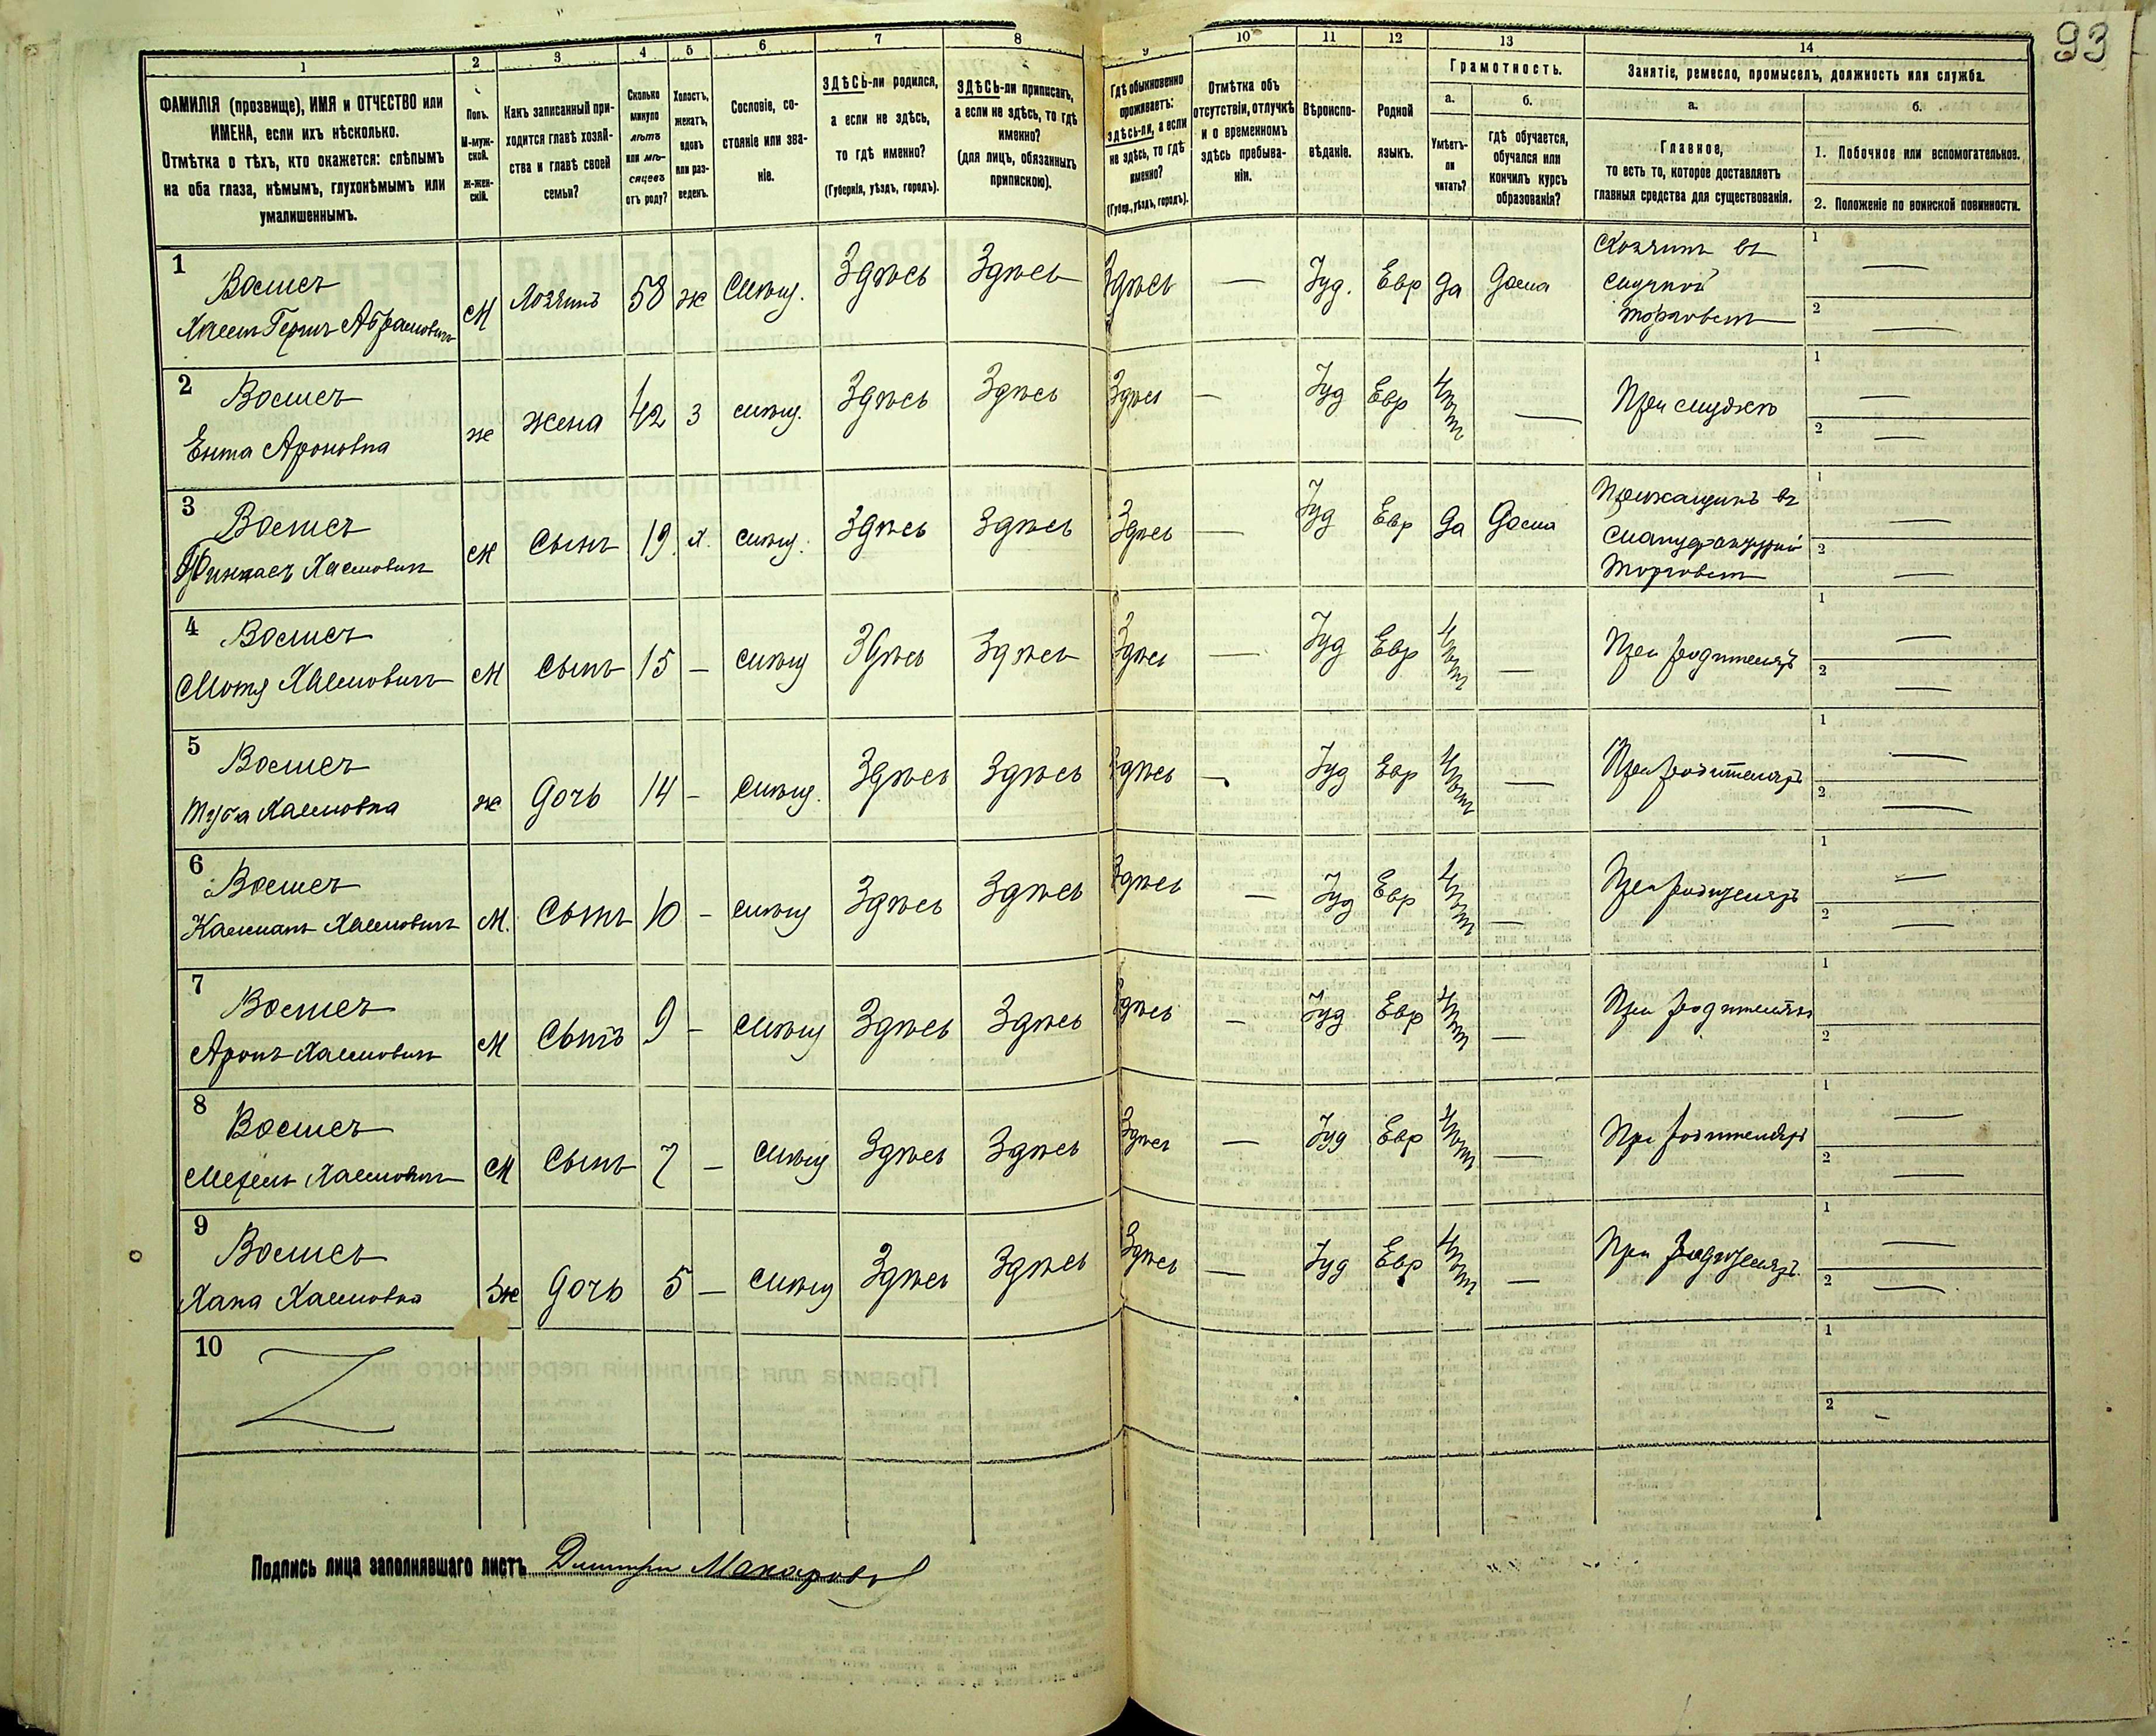 93
1 2 3 4 5 6 7 8 9 10 11 12 13 14
ФАМИЛІЯ (прозвище), ИМЯ и ОТЧЕСТВО или
ИМЕНА, если ихъ нѣсколько.
Отмѣтка о тѣхъ, кто окажется: слѣпымъ
на оба глаза, нѣмымъ, глухонѣмымъ или
умалишеннымъ.
Полъ.
М-муж-
ской.
Ж-жен-
скій.
Какъ записанный при-
ходится главѣ хозяй-
ства и главѣ своей
семьи?
Сколько
минуло
лѣтъ
или мѣ-
сяцевъ
отъ роду?
Холостъ,
женатъ,
вдовъ
или раз-
веденъ.
Сословіе, со-
стояніе или зва-
ніе.
ЗДѢСЬ-ли родился,
а если не здѣсь,
то гдѣ именно?
(Губернія, уѣздъ, городъ).
ЗДѢСЬ-ли приписанъ,
а если не здѣсь, то гдѣ
именно?
(для лицъ, обязанныхъ
припискою).
Гдѣ обыкновенно
проживаетъ:
здѣсь-ли, а если
не здѣсь, то гдѣ
именно?
(Губер., уѣздъ, городъ).
Отмѣтка объ
отсутствіи, отлучкѣ
и о временномъ
здѣсь пребыва-
ніи.
Вѣроиспо-
вѣданіе.
Родной
языкъ.
Грамотность.
а.
Умѣетъ-
ли
читать?
б.
гдѣ обучается,
обучался или
кончилъ курсъ
образованія?
Занятіе, ремесло, промыселъ, должность или служба.
а.
Главное,
то есть то, которое доставляетъ
главныя средства для существованія.
б.
1. Побочное или вспомогательное.
2. Положеніе по воинской повинности.
1
Хаимъ Гершъ Абрамовичъ
М Хозяинъ 58 ж Здѣсь Здѣсь Здѣсь — Іуд. Евр да дома
Хозяинъ въ
торговлѣ
1 —
2 —
2
Ента Ароновна
ж жена 42 З Здѣсь Здѣсь Здѣсь — Іуд Евр нѣтъ — При мужѣ
1 —
2 —
3
Пинкасъ Хаимовичъ
М Сынъ 19 х. Здѣсь Здѣсь Здѣсь — Іуд Евр да дома
Прикащикъ въ
мануфактурной
торговлѣ
1 —
2 —
4
Мотя Хаимовичъ
М Сынъ 15 — Здѣсь Здѣсь Здѣсь — Іуд Евр нѣтъ — При родителяхъ
1 —
2 —
5
Туба Хаимовна
ж дочь 14 — Здѣсь Здѣсь Здѣсь — Іуд Евр нѣтъ — При родителяхъ
1 —
2 —
6
Калманъ Хаимовичъ
М. Сынъ 10 — Здѣсь Здѣсь Здѣсь — Іуд Евр нѣтъ — При родителяхъ
1 —
2 —
7
Аронъ Хаимовичъ
М Сынъ 9 — Здѣсь Здѣсь Здѣсь — Іуд Евр нѣтъ — При родителяхъ
1
2
8
Мехель Хаимовичъ
М Сынъ 7 — Здѣсь Здѣсь Здѣсь — Іуд Евр нѣтъ — При родителяхъ
1 —
2 —
9
Хана Хаимовна
ж дочь 5 — Здѣсь Здѣсь Здѣсь — Іуд Евр нѣтъ — При родителяхъ
1 —
2 —
10
1
2 —
Подпись лица заполнявшаго листъ Дмитри Макаровъ